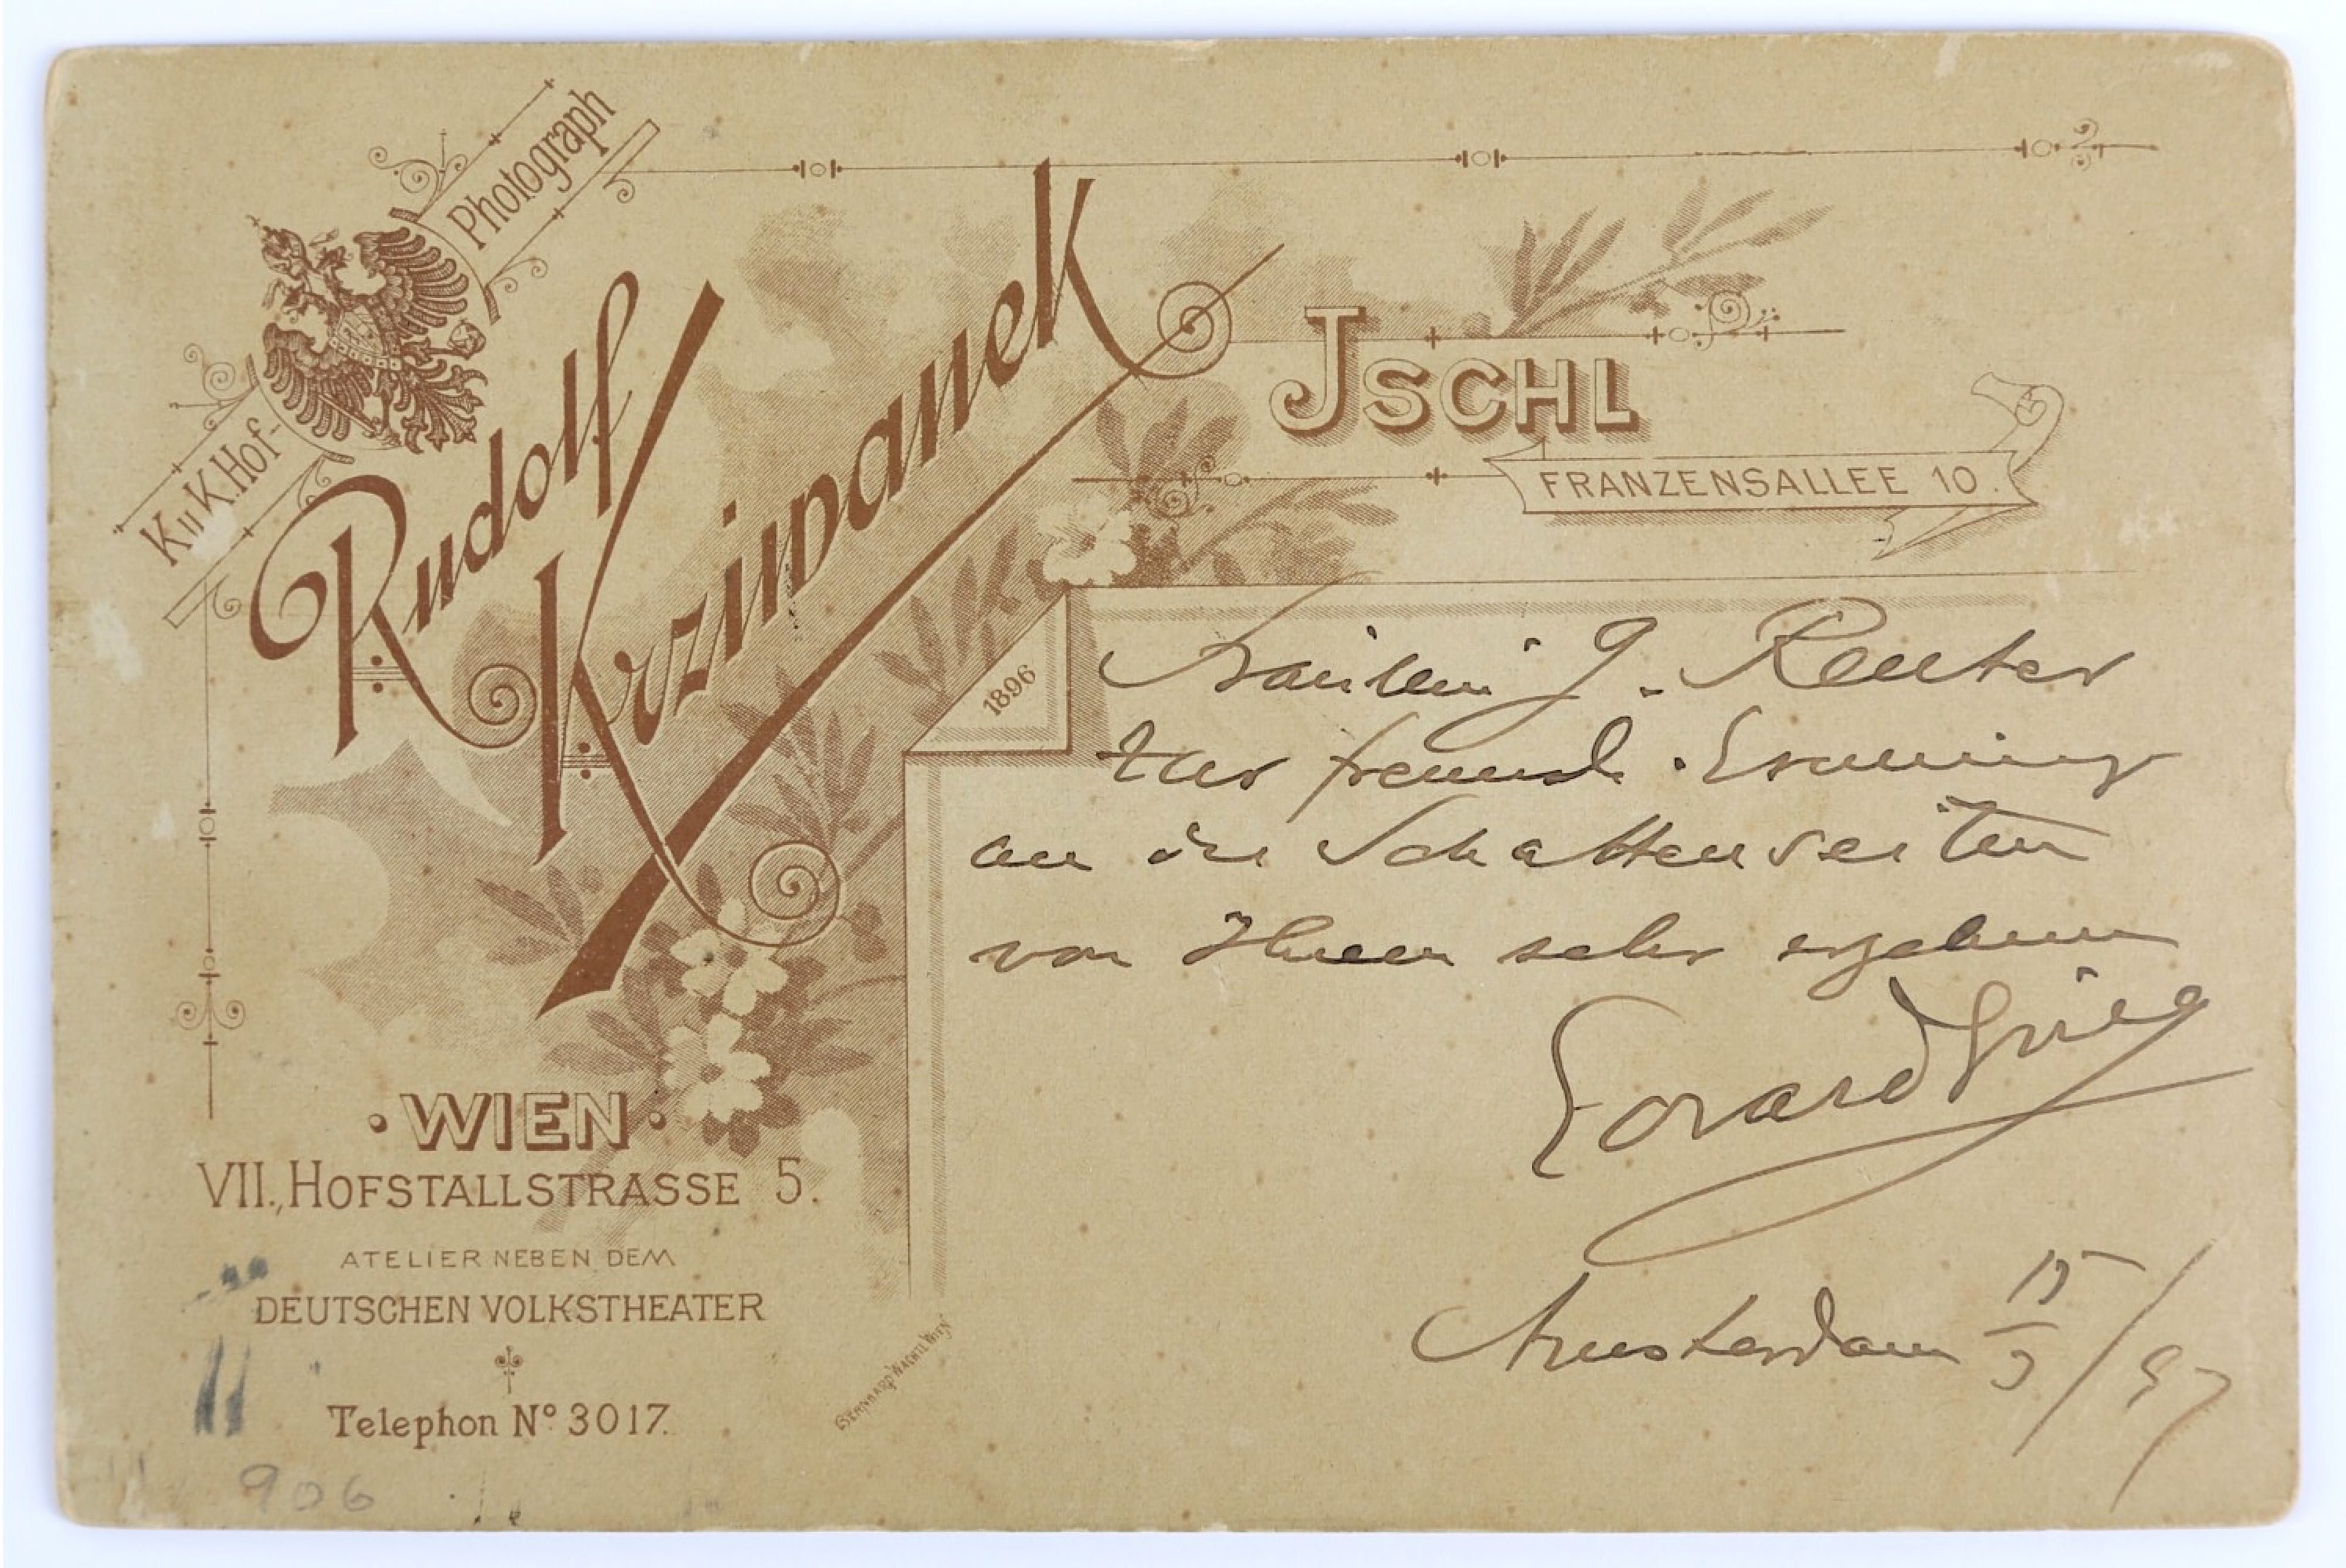 K. u. K. Hof-
Photograph
Rudolf
Krziwanek
JSCHL
FRANZENSALLEE 10.
1896
Fräulein J. Reuter
zur freundl. Erinnerung
an die Schattenseiten
von Ihrem sehr ergebenen
Edvard Grieg
Amsterdam 15/3/97
·WIEN·
VII., HOFSTALLSTRASSE 5.
ATELIER NEBEN DEM
DEUTSCHEN VOLKSTHEATER
Telephon Nº 3017.
BERNHARD WACHTL WIEN
906